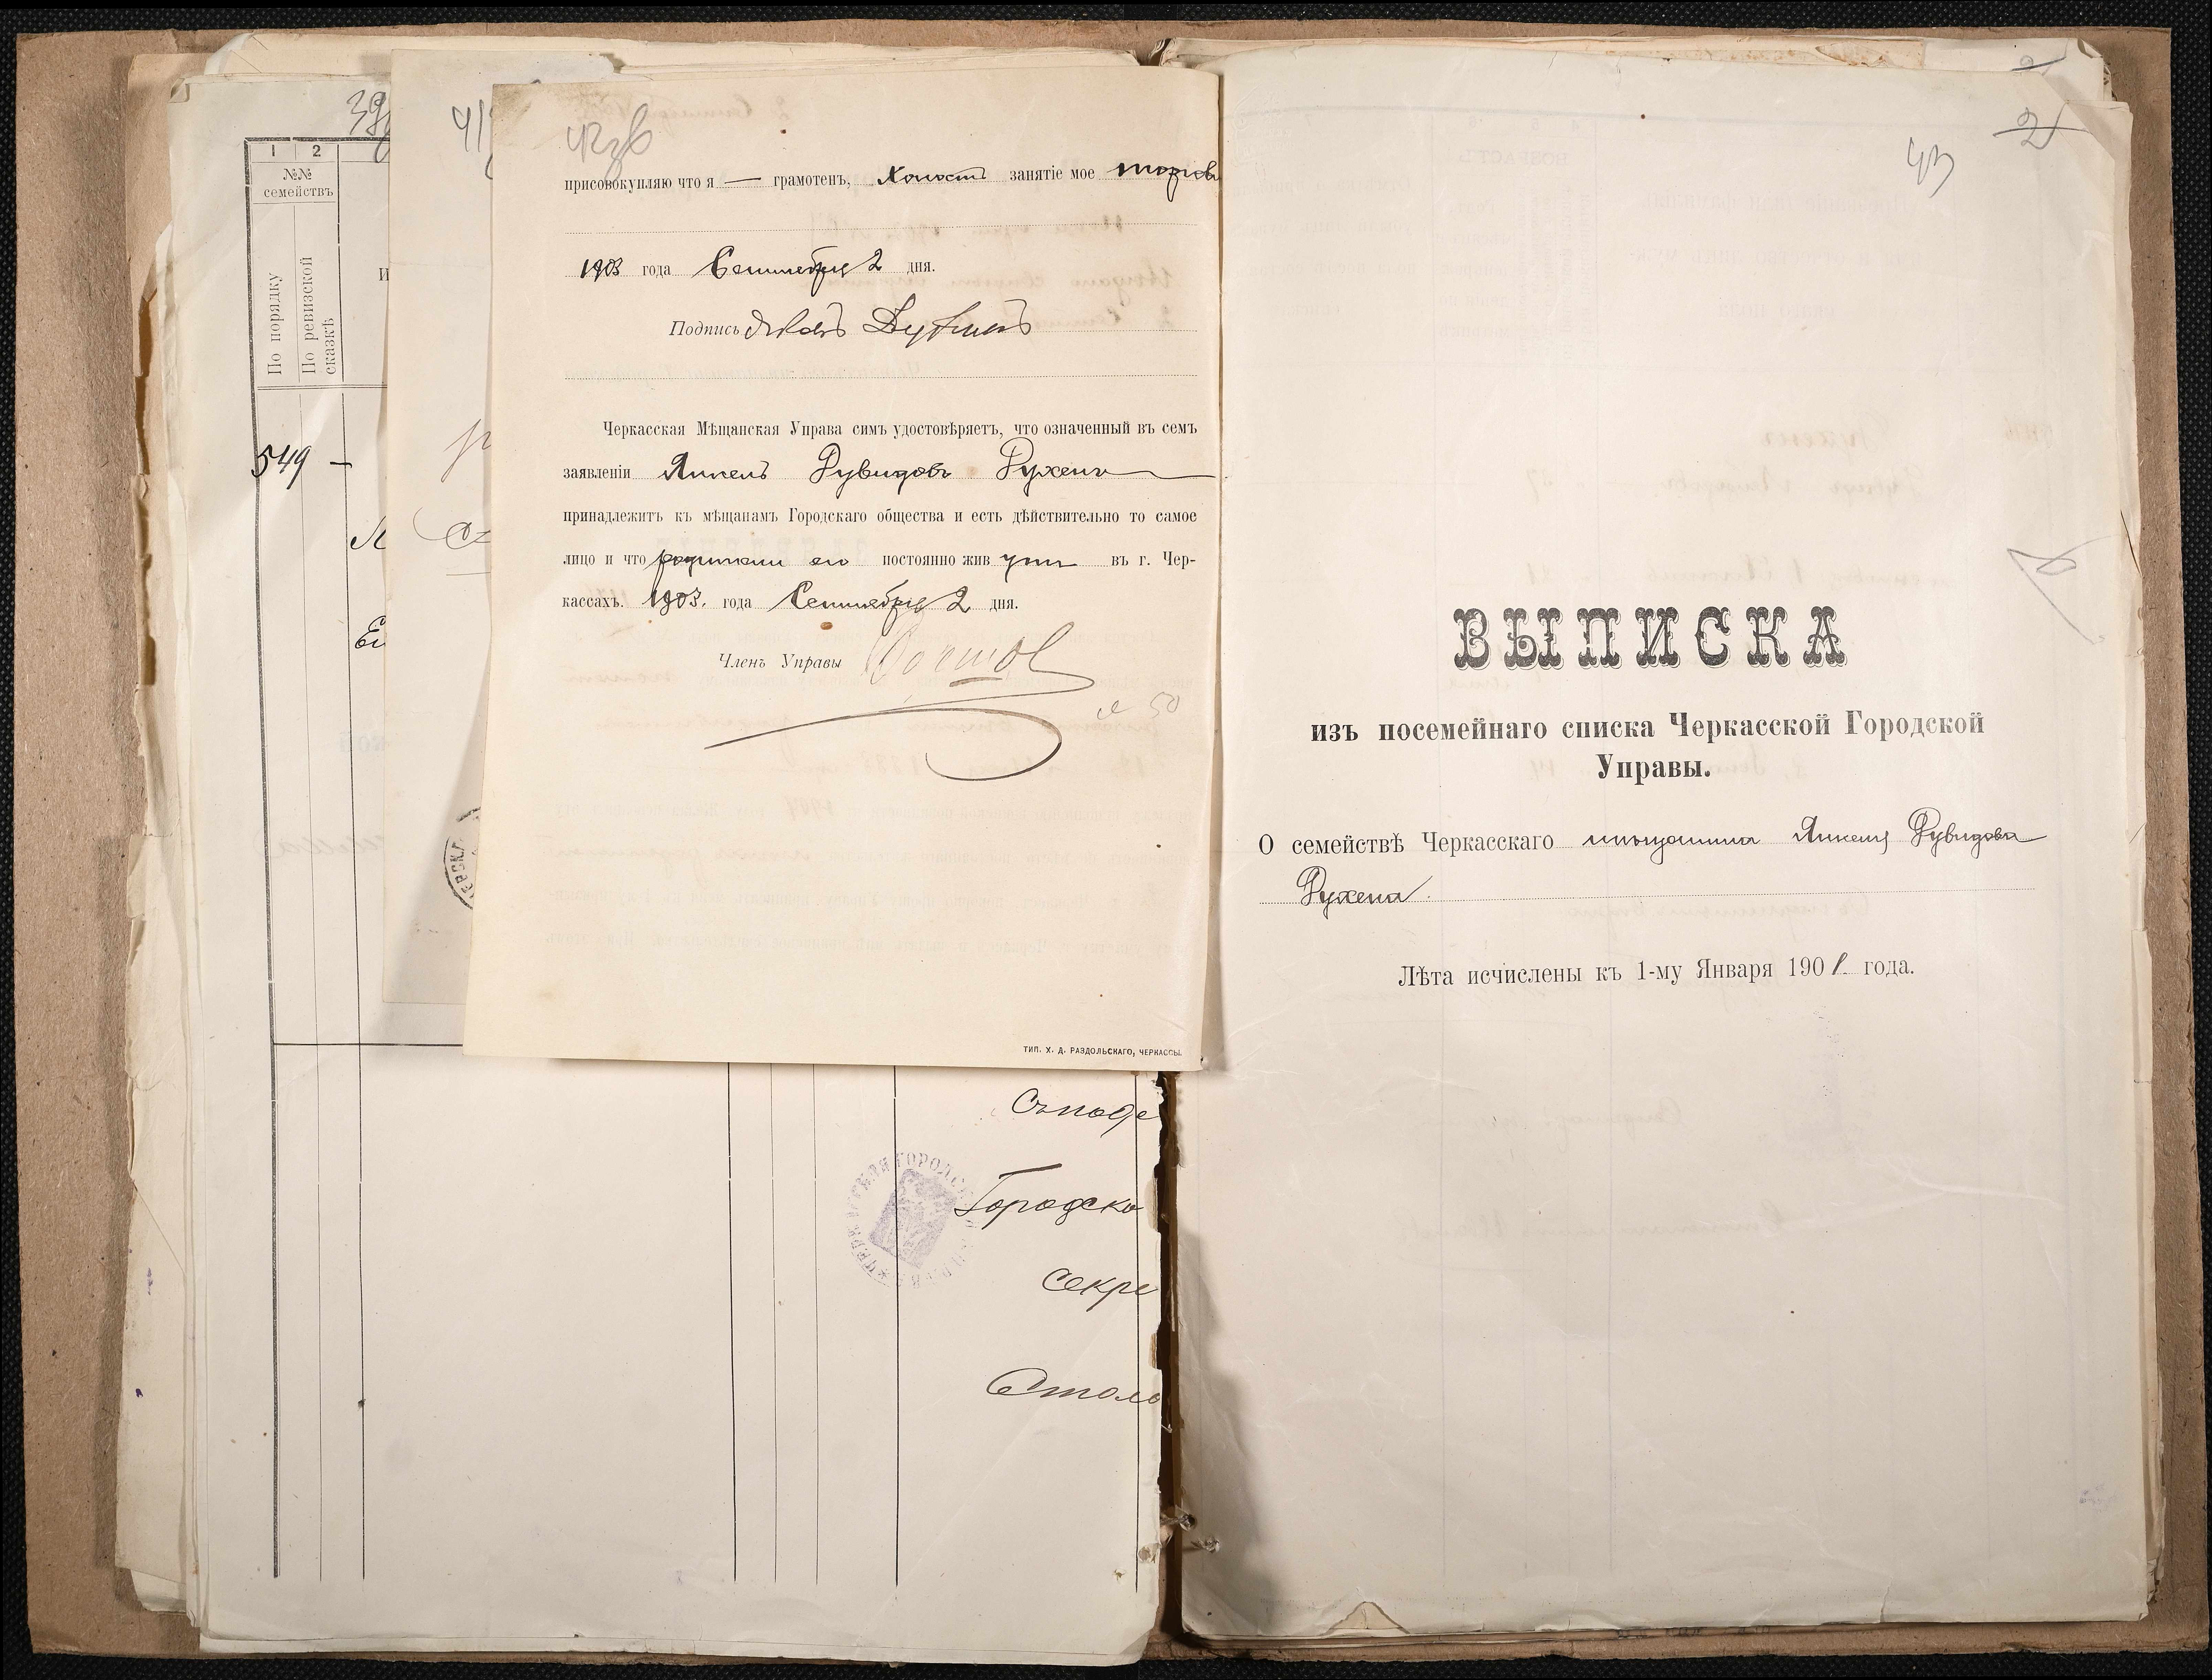 1 2
№№
семействъ
По порядку
По ревизской
сказкѣ
И
549 —
42об
присовокупляю что я — грамотенъ, Холостъ занятіе мое торгов
1903 года Сентября 2 дня.
Подпись
Черкасская Мѣщанская Управа симъ удостовѣряетъ, что означенный въ семъ
заявленіи Янкель Рувидовъ Рухенъ
принадлежитъ къ мѣщанамъ Городскаго общества и есть дѣйствительно то самое
лицо и что родители его постоянно живутъ въ г. Чер-
кассахъ. 1903. года Сентября 2 дня.
Членъ Управы
50
ТИП. Х. Д. РАЗДОЛЬСКАГО, ЧЕРКАССЫ.
Городско
Секре
Столо
2
43
ВЫПИСКА
изъ посемейнаго списка Черкасской Городской
Управы.
О семействѣ Черкасскаго мѣщанина Янкеля Рувидова
Рухена.
Лѣта исчислены къ 1-му Января 190 года.